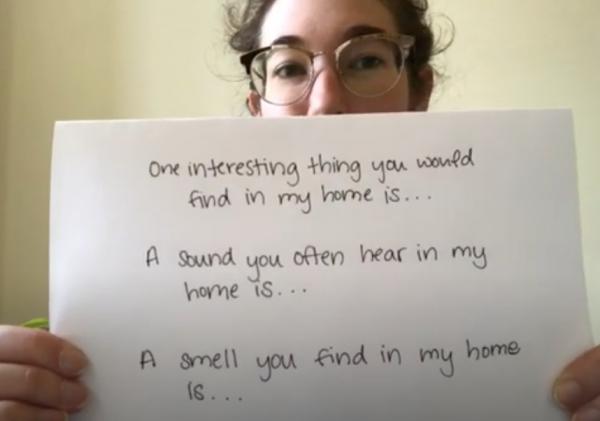 One interesting thing you would
find in my home is...
A sound you often hear in my
home is...
A smell you find in my home
is...